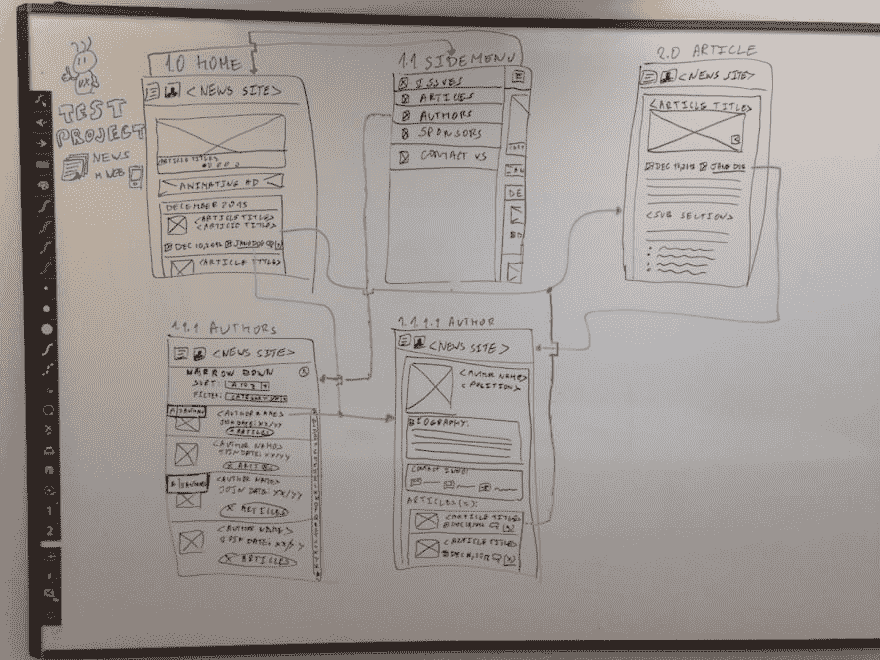 UX
TEST
PROJECT
NEWS
M WEB
1.0 HOME
<NEWS SITE>
ARTICLE TITLE>
ANIMATING AD
DECEMBER 2013
<ARTICLE TITLE>
<ARTICLE TITLE>
DEC 10, 2012 JANE DOE
<ARTICLE TITLE>
1.1 SIDEMENU
ISSUES
ARTICLES
AUTHORS
SPONSORS
CONTACT US
DE
2.0 ARTICLE
<NEWS SITE>
<ARTICLE TITLE>
JANE DOE
<SUB SECTION>
1.1.1 AUTHORS
<NEWS SITE>
NARROW DOWN
SORT: A TO Z
FILTER:
<AUTHOR NAME>
JOIN DATE: XX/YY
X ARTICLES
<AUTHOR NAME>
JOIN DATE: XX/YY
<AUTHOR NAME>
JOIN DATE: XX/YY
X ARTICLES
<AUTHOR NAME>
JOIN DATE: XX/YY
X ARTICLES
1.1.1.1 AUTHOR
<NEWS SITE>
<AUTHOR NAME>
<POSITION>
BIOGRAPHY:
CONTACT INFO:
ARTICLES(X):
<ARTICLE TITLE>
<ARTICLE TITLE>
1
2